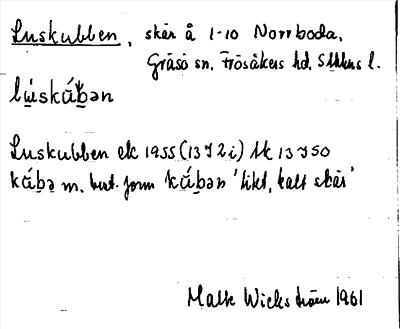 Luskubben, skär å 1-10 Norrboda,
Gräsö sn, Frösåkers hd, Sthlms l.
lɯ́skú̄b̯ən
Luskubben ek 1955 (13 I 2 i) Mk 13 J 50
kú̄b̯ə m. best. form kú̄b̯ən 'litet, kalt skär'
Malte Wickström 1961